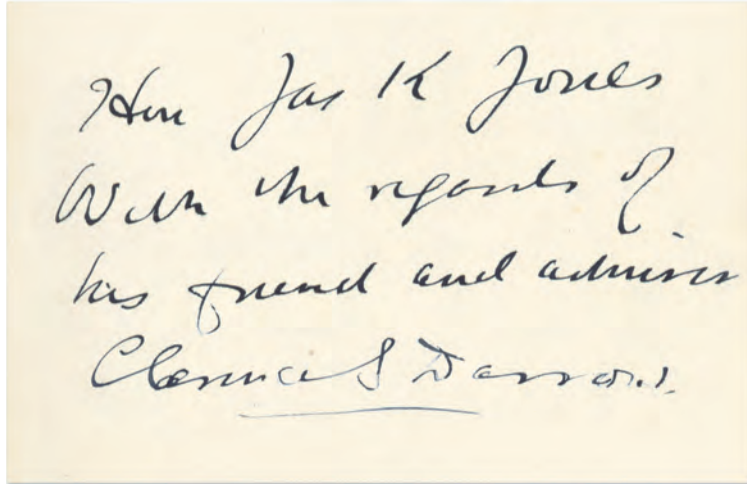 Hon Jas K Jones
With the regards of
his friend and admirer
Clarence S Darrow.